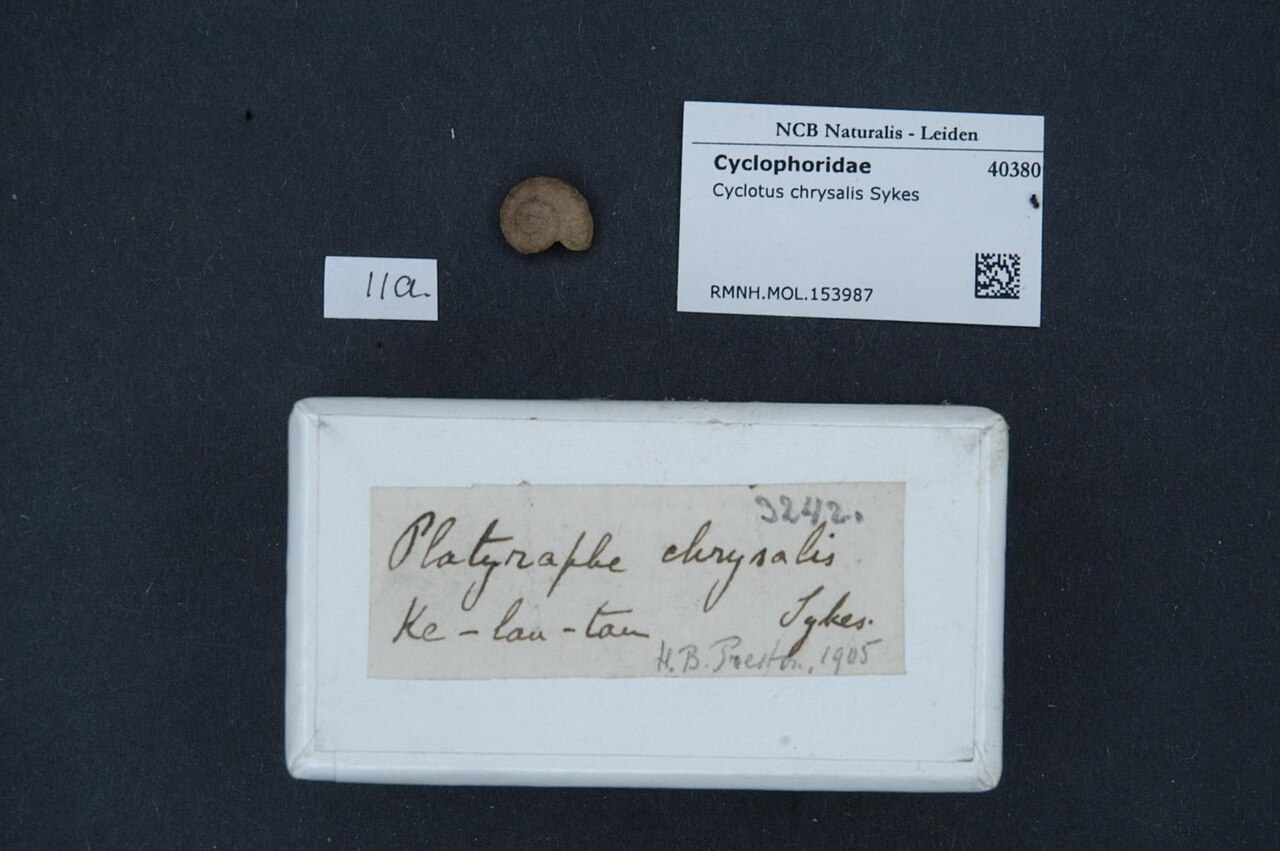 NCB Naturalis - Leiden
Cyclophoridae 40380
Cyclotus chrysalis Sykes
RMNH.MOL.153987
11a.
3242.
Platyraphe chrysalis
Ke-lan-tan Sykes.
H. B. Preston, 1905